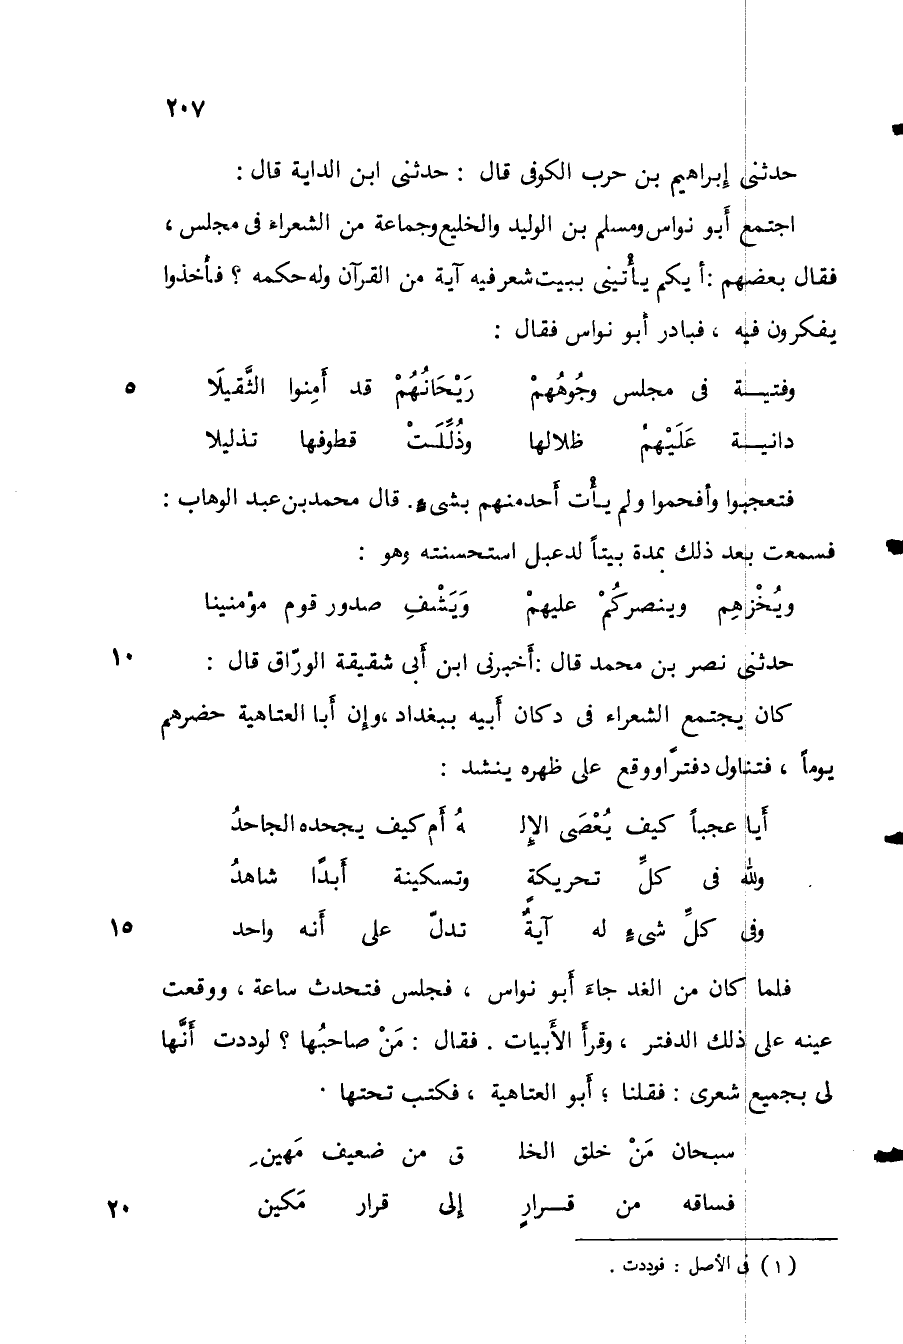 ٢٠٧
حدثنى إبراهيم بن حرب الكوفى قال : حدثنى ابن الداية قال :
اجتمع أبو نواس ومسلم بن الوليد والخليع وجماعة من الشعراء فى مجلس ،
فقال بعضهم : أيكم يأتينى ببيت شعر فيه آية من القرآن وله حكمه ؟ فأخذوا
يفكرون فيه ، فبادر أبو نواس فقال :
وفتيــة فى مجلس وجُوهُهمْ رَيْحَانُهُمْ قد أَمِنوا الثَّقيلَا ٥
دانيــة عَلَيْهمُ ظلالها وذُلِّلَــتْ قطوفها تذليلا
فتعجبوا وأفحموا ولم يأت أحد منهم بشىءٍ. قال محمد بن عبد الوهاب :
فسمعت بعد ذلك بمدة بيتاً لدعبل استحسنته وهو :
ويُخْزِهِم وينصركُمْ عليهمْ وَيَشْفِ صدور قوم مؤمنينا
حدثنى نصر بن محمد قال : أخبرنى ابن أبى شقيقة الورّاق قال : ١٠
كان يجتمع الشعراء فى دكان أبيه ببغداد ، وإن أبا العتاهية حضرهم
يوماً ، فتناول دفترًا ووقع على ظهره ينشد :
أيا عجباً كيف يُعْصَى الإِلـ ـهُ أم كيف يجحده الجاحدُ
ولله فى كلِّ تحريكةٍ وتسكينة أبدًا شاهدُ
وفى كلِّ شىءٍ له آيةٌ تدلّ على أنه واحد ١٥
فلما كان من الغد جاءَ أبو نواس ، فجلس فتحدث ساعة ، ووقعت
عينه على ذلك الدفتر ، وقرأَ الأَبيات . فقال : مَنْ صاحبُها ؟ لوددت أنَّها
لى بجميع شعرى : فقلنا ؛ أبو العتاهية ، فكتب تحتها ·
سبحان مَنْ خلق الخلـ ـق من ضعيف مَهين ِ
فساقه من قــرارٍ إلى قرار مَكين ٢٠
( ١ ) فى الأصل : فوددت .